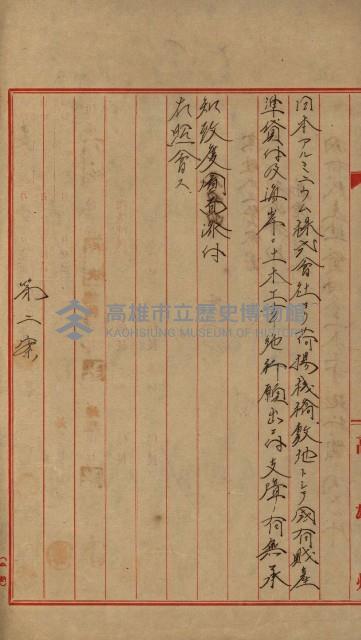 日本アルミニウム株式會社ヨリ荷揚棧橋敷地トシテ國有財產
準貸付及海岸ニ土木工事施行願出ニ付支障ノ有無承
知致度關書添付
右照會ス
第二案
高雄市立歷史博物館
KAOHSIUNG MUSEUM OF HISTORY
高雄州